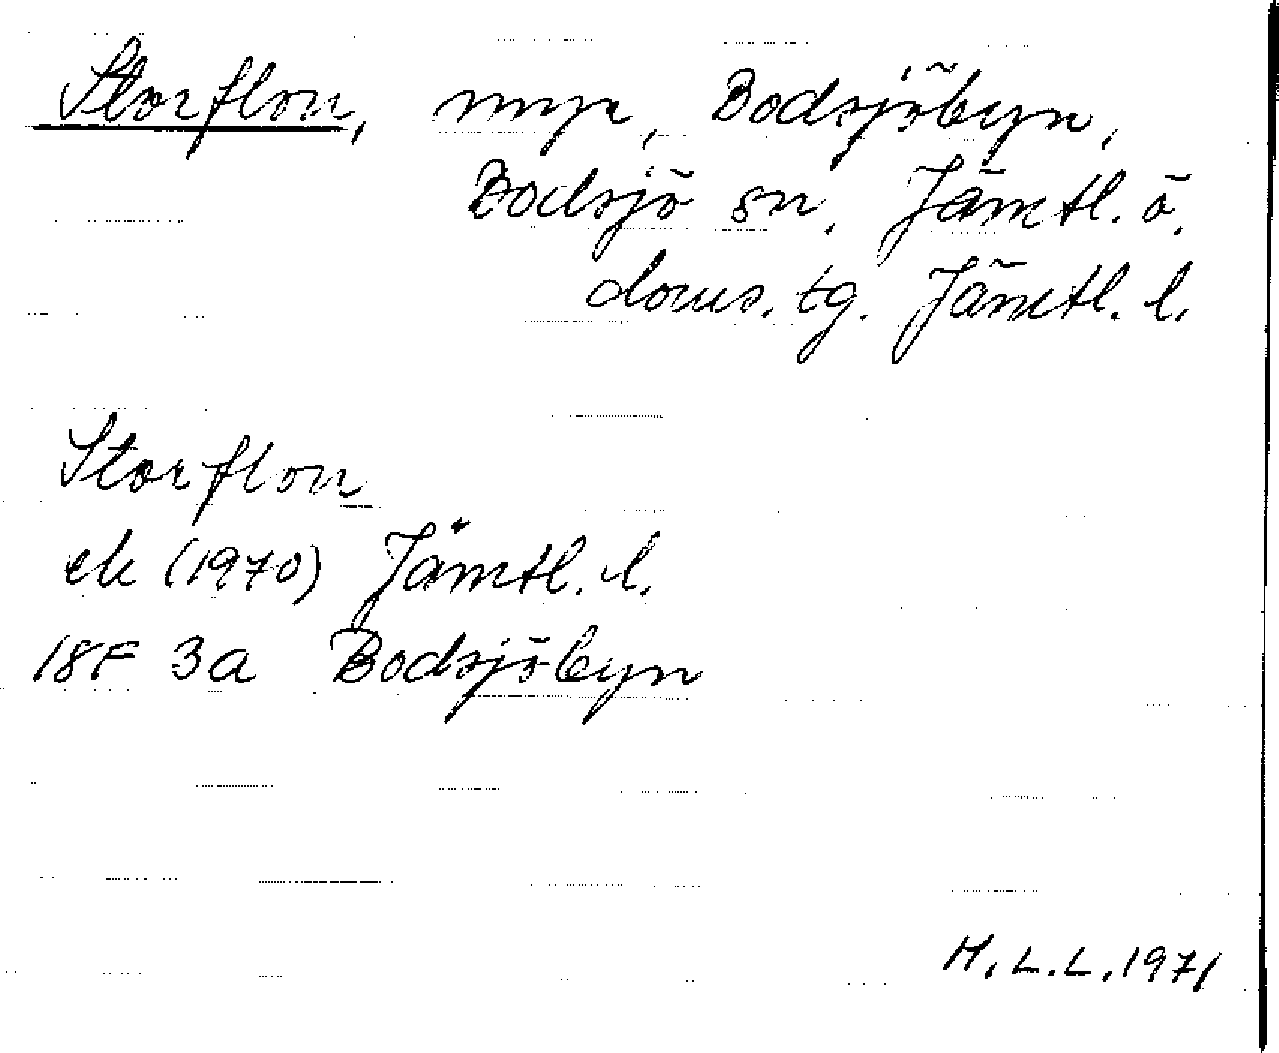 Storflon, myr, Bodsjöbyn,
Bodsjö sn, Jämtl. ö.
doms. tg. Jämtl. l.
Storflon
ek (1970) Jämtl. l.
18F 3a Bodsjöbyn
M.L.L. 1971